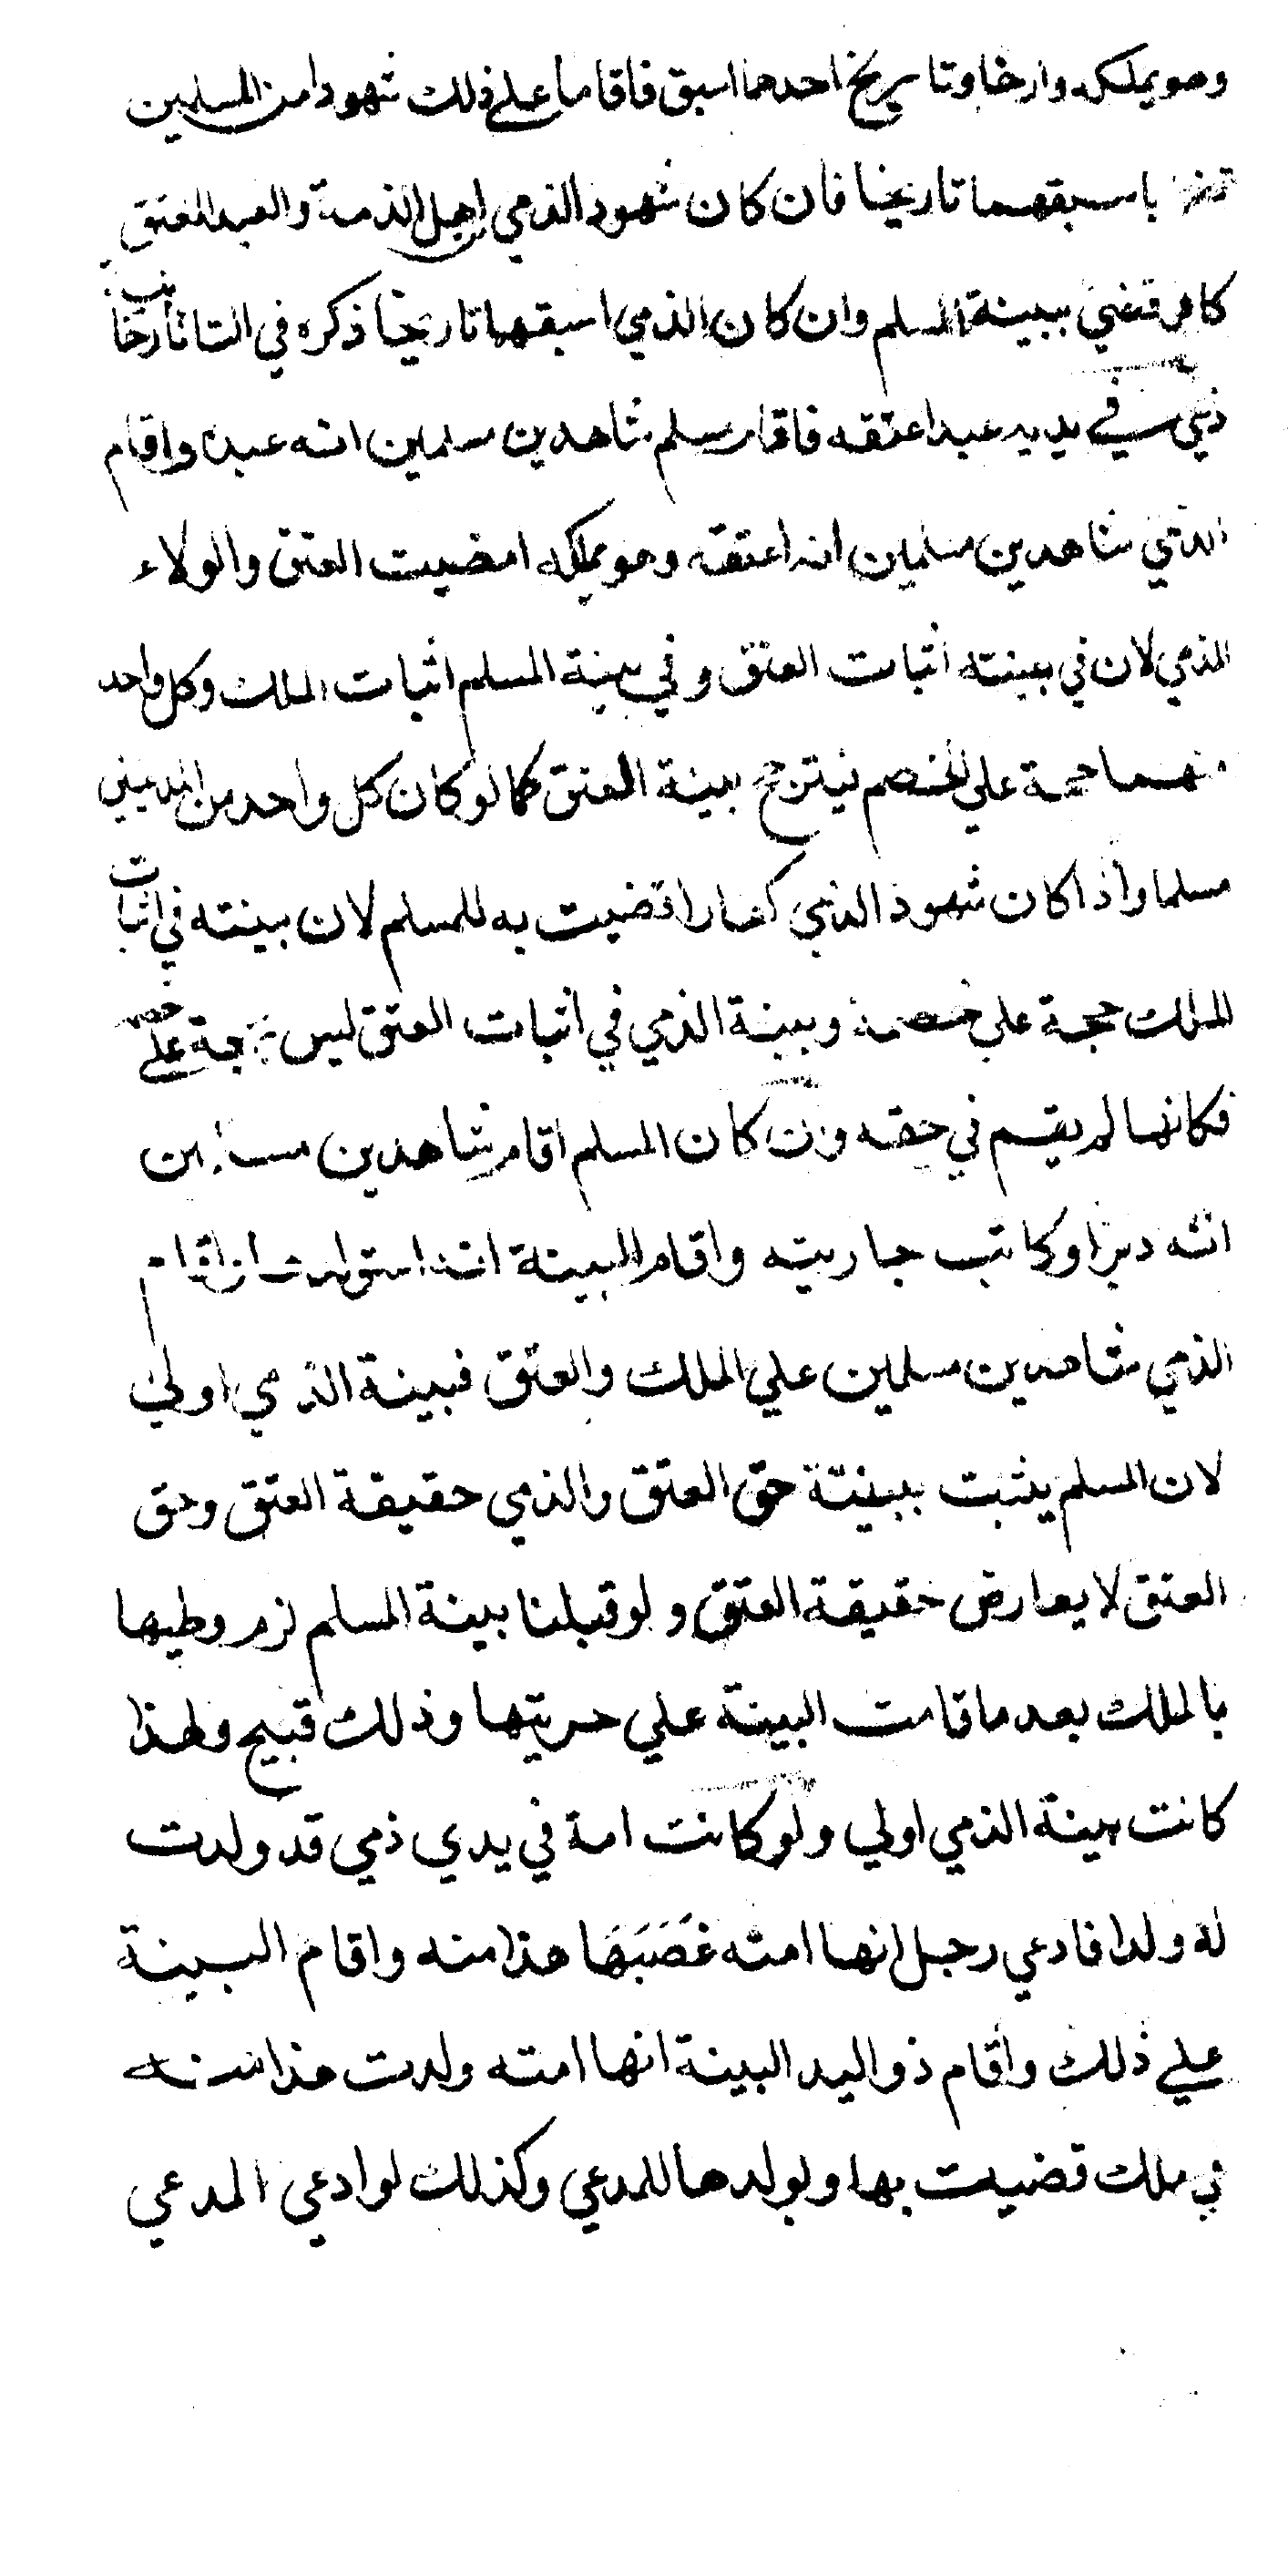 وهو يملكه وارخا وتاريخ احدهما اسبق فاقاما علي ذلك شهودا من المسلمين
باسبقهما تاريخا فان كان شهود الذمي اهل الذمة والعبد المعتق
كافر قضي ببينة المسلم وان كان الذمي اسبقهما تاريخا ذكره في التاتارخانية
ذمي في يديه عبد اعتقه فاقام مسلم شاهدين مسلمين انه عبده واقام
الذمي شاهدين مسلمين انه اعتقه وهو يملكه امضيت العتق والولاء
للذمي لان في بينته اثبات العتق وفي بينة المسلم اثبات الملك وكل واحد
منهما حجة علي الخصم فيترجح بينة العتق كما لو كان كل واحد من المدعيين
مسلما واذا كان شهود الذمي كفارا قضيت به للمسلم لان بينته في اثبات
الملك حجة علي خصمه وبينة الذمي في اثبات العتق ليس بحجة علي خصمه
فكانها لم يقم في حقه وان كان المسلم اقام شاهدين مسلمين
انه دبر او كاتب جاريته واقام البينة انه استولدها واقام
الذمي شاهدين مسلمين علي الملك والعتق فبينة الذمي اولي
لان المسلم يثبت ببينته حق العتق والذمي حقيقة العتق وحق
العتق لا يعارض حقيقة العتق ولو قبلنا بينة المسلم لزم وطيها
بالملك بعد ما قامت البينة علي حريتها وذلك قبيح ولهذا
كانت بينة الذمي اولي ولو كانت امة في يدي ذمي قد ولدت
له ولدا فادعي رجل انها امته غَصَبَهَا هذا منه واقام البينة
علي ذلك واقام ذو اليد البينة انها امته ولدت هذا منه
في ملك قضيت بها وبولدها للمدعي وكذلك لو ادعي المدعي